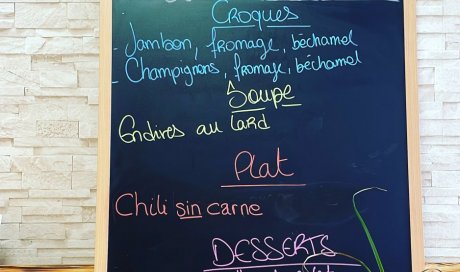 Croques
- Jambon, fromage, béchamel
- Champignons, fromage, béchamel
Soupe
Endives au lard
Plat
Chili sin carne
DESSERTS